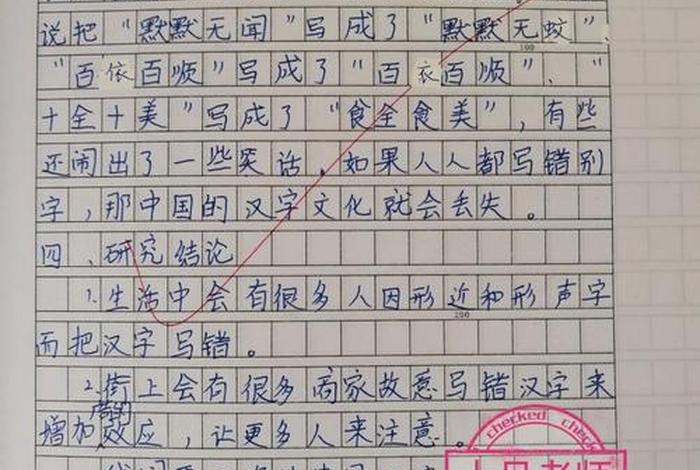 说把“默默无闻”写成了“默默无蚊”、
100
“百依百顺”写成了“百衣百顺”、“
十全十美”写成了“食全食美”,有些
还闹出了一些笑话,如果人人都写错别
字,那中国的汉字文化就会丢失。
四、研究结论
1.生活中会有很多人因形近和形声字
200
而把汉字写错。
2.街上会有很多商家故意写错汉字来
增加效应,让更多人来注意。
checked checked